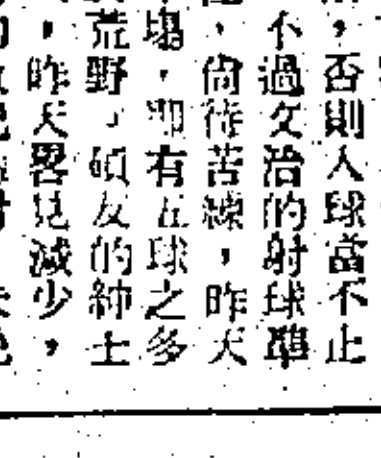 ，否則入球當不止
不過文治的射球準
，尚待苦練，昨天
塲，即有五球之多
荒野」碩友的紳士
，昨天畧見減少，